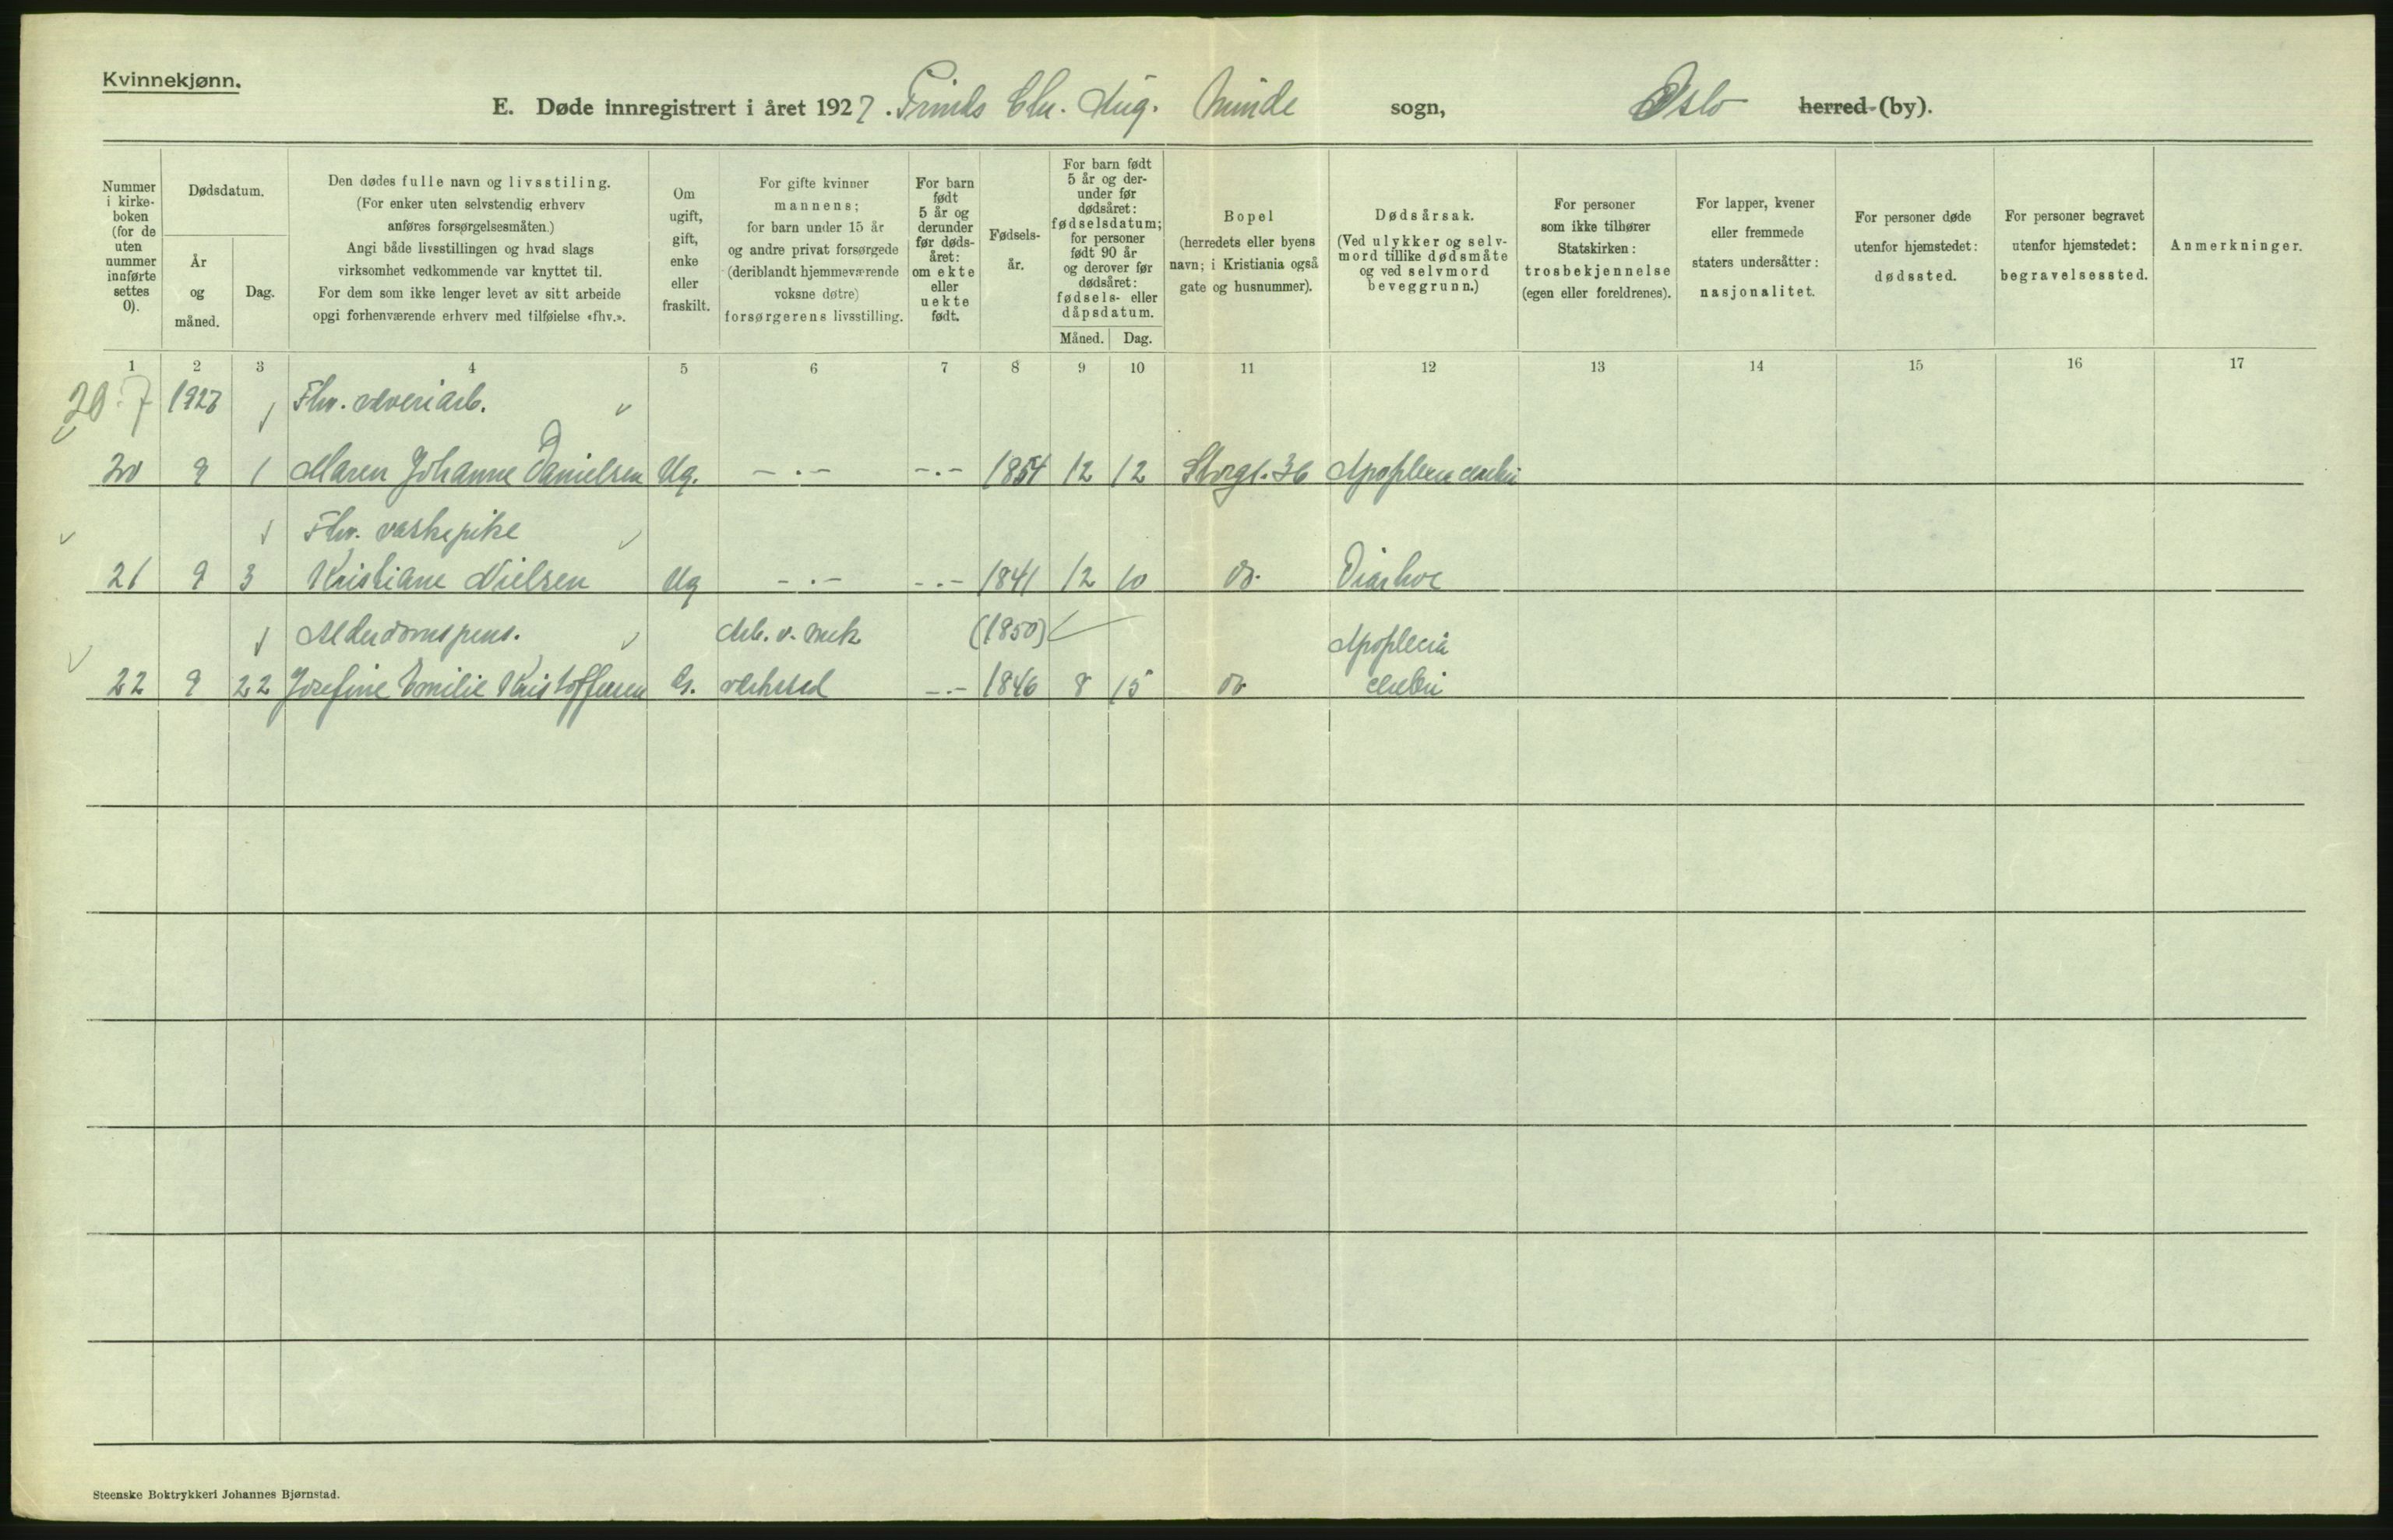 Kvinnekjønn.
E. Døde innregistrert i året 1927. Prinds Chr. Aug. Minde sogn, Oslo herred (by).
Nummer i kirkeboken (for de uten nummer innførte settes 0).
Dødsdatum.
År og måned.
Dag.
Den dødes fulle navn og livsstiling.
(For enker uten selvstendig erhverv
anføres forsørgelsesmåten.)
Angi både livsstillingen og hvad slags
virksomhet vedkommende var knyttet til.
For dem som ikke lenger levet av sitt arbeide
opgi forhenværende erhverv med tilføielse «fhv.».
Om
ugift,
gift,
enke
eller
fraskilt.
For gifte kvinner
mannens;
for barn under 15 år
og andre privat forsørgede
(deriblandt hjemmeværende
voksne døtre)
forsørgerens livsstilling.
For barn
født
5 år og
derunder
før døds-
året:
om ekte
eller
uekte
født.
Fødsels-
år.
For barn født
5 år og der-
under før
dødsåret:
fødselsdatum;
for personer
født 90 år
og derover før
dødsåret:
fødsels- eller
dåpsdatum.
Måned. Dag.
Bopel
(herredets eller byens
navn; i Kristiania også
gate og husnummer).
Dødsårsak.
(Ved ulykker og selv-
mord tillike dødsmåte
og ved selvmord
beveggrunn.)
For personer
som ikke tilhører
Statskirken:
trosbekjennelse
(egen eller foreldrenes).
For lapper, kvener
eller fremmede
staters undersåtter:
nasjonalitet.
For personer døde
utenfor hjemstedet:
dødssted.
For personer begravet
utenfor hjemstedet:
begravelsessted.
Anmerkninger.
1 2 3 4 5 6 7 8 9 10 11 12 13 14 15 16 17
20.7 1927 Fhv. veveriarb.
20 9 1 Maren Johanne Danielsen Ug. -.- -.- 1854 12 12 Storgt. 36 Apoplexia cerebri
Fhv. vaskepike
21 9 3 Kristiane Nielsen Ug -.- -.- 1841 12 10 do. Diarhoe
Alderdomspens. Arb. v. mek (1850) Apoplecia
22 9 22 Josefine Emilie Kristoffersen G. verksted -.- 1846 8 15 do cerebri
Steenske Boktrykkeri Johannes Bjørnstad.